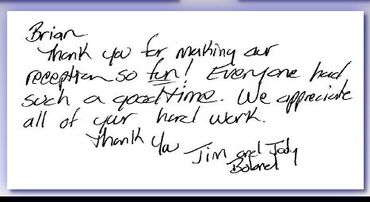 Brian
Thank you for making our
reception so fun! Everyone had
such a good time. We appreciate
all of your hard work.
Thank You
Jim and Jody
Boland